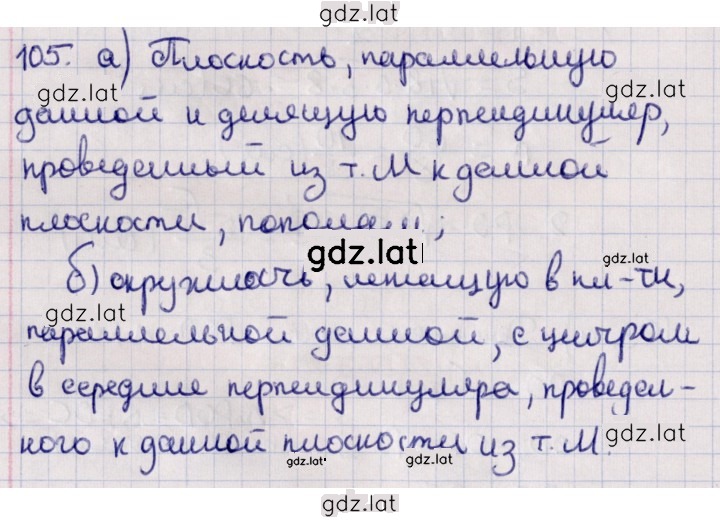 gdz.lat
105. а) Плоскость, параллельную
gdz.lat
gdz.lat
данной и делящую перпендикуляр,
проведенный из т. М к данной
gdz.lat
плоскости, пополам;
gdz.lat
gdz.lat
б) окружность, лежащую в пл-ти,
gdz.lat
параллельной данной, с центром
в середине перпендикуляра, проведен-
gdz.lat
ного к данной плоскости из т. М.
gdz.lat
gdz.lat
gdz.lat